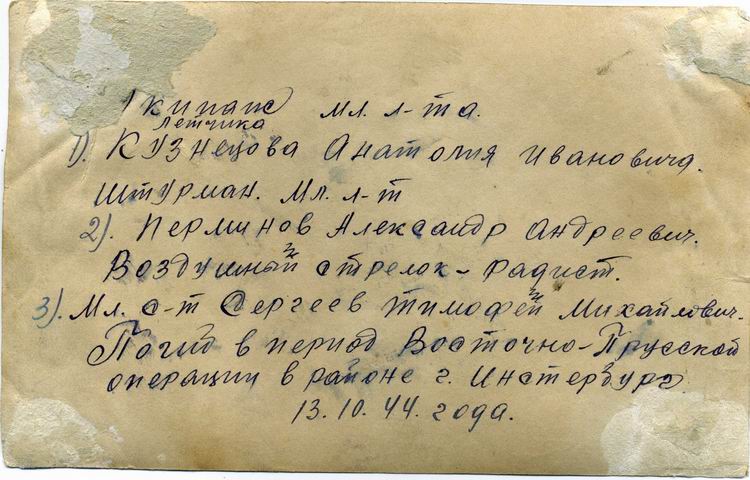 Экипаж мл. л-та.
летчика
1). Кузнецова Анатолия Ивановича.
Штурман. Мл. л-т
2). Перминов Александр Андреевич.
Воздушный стрелок-радист.
3). Мл. с-т Сергеев Тимофей Михайлович.
Погиб в период Восточно-Прусской
операции в районе г. Инстербург
13.10.44. года.